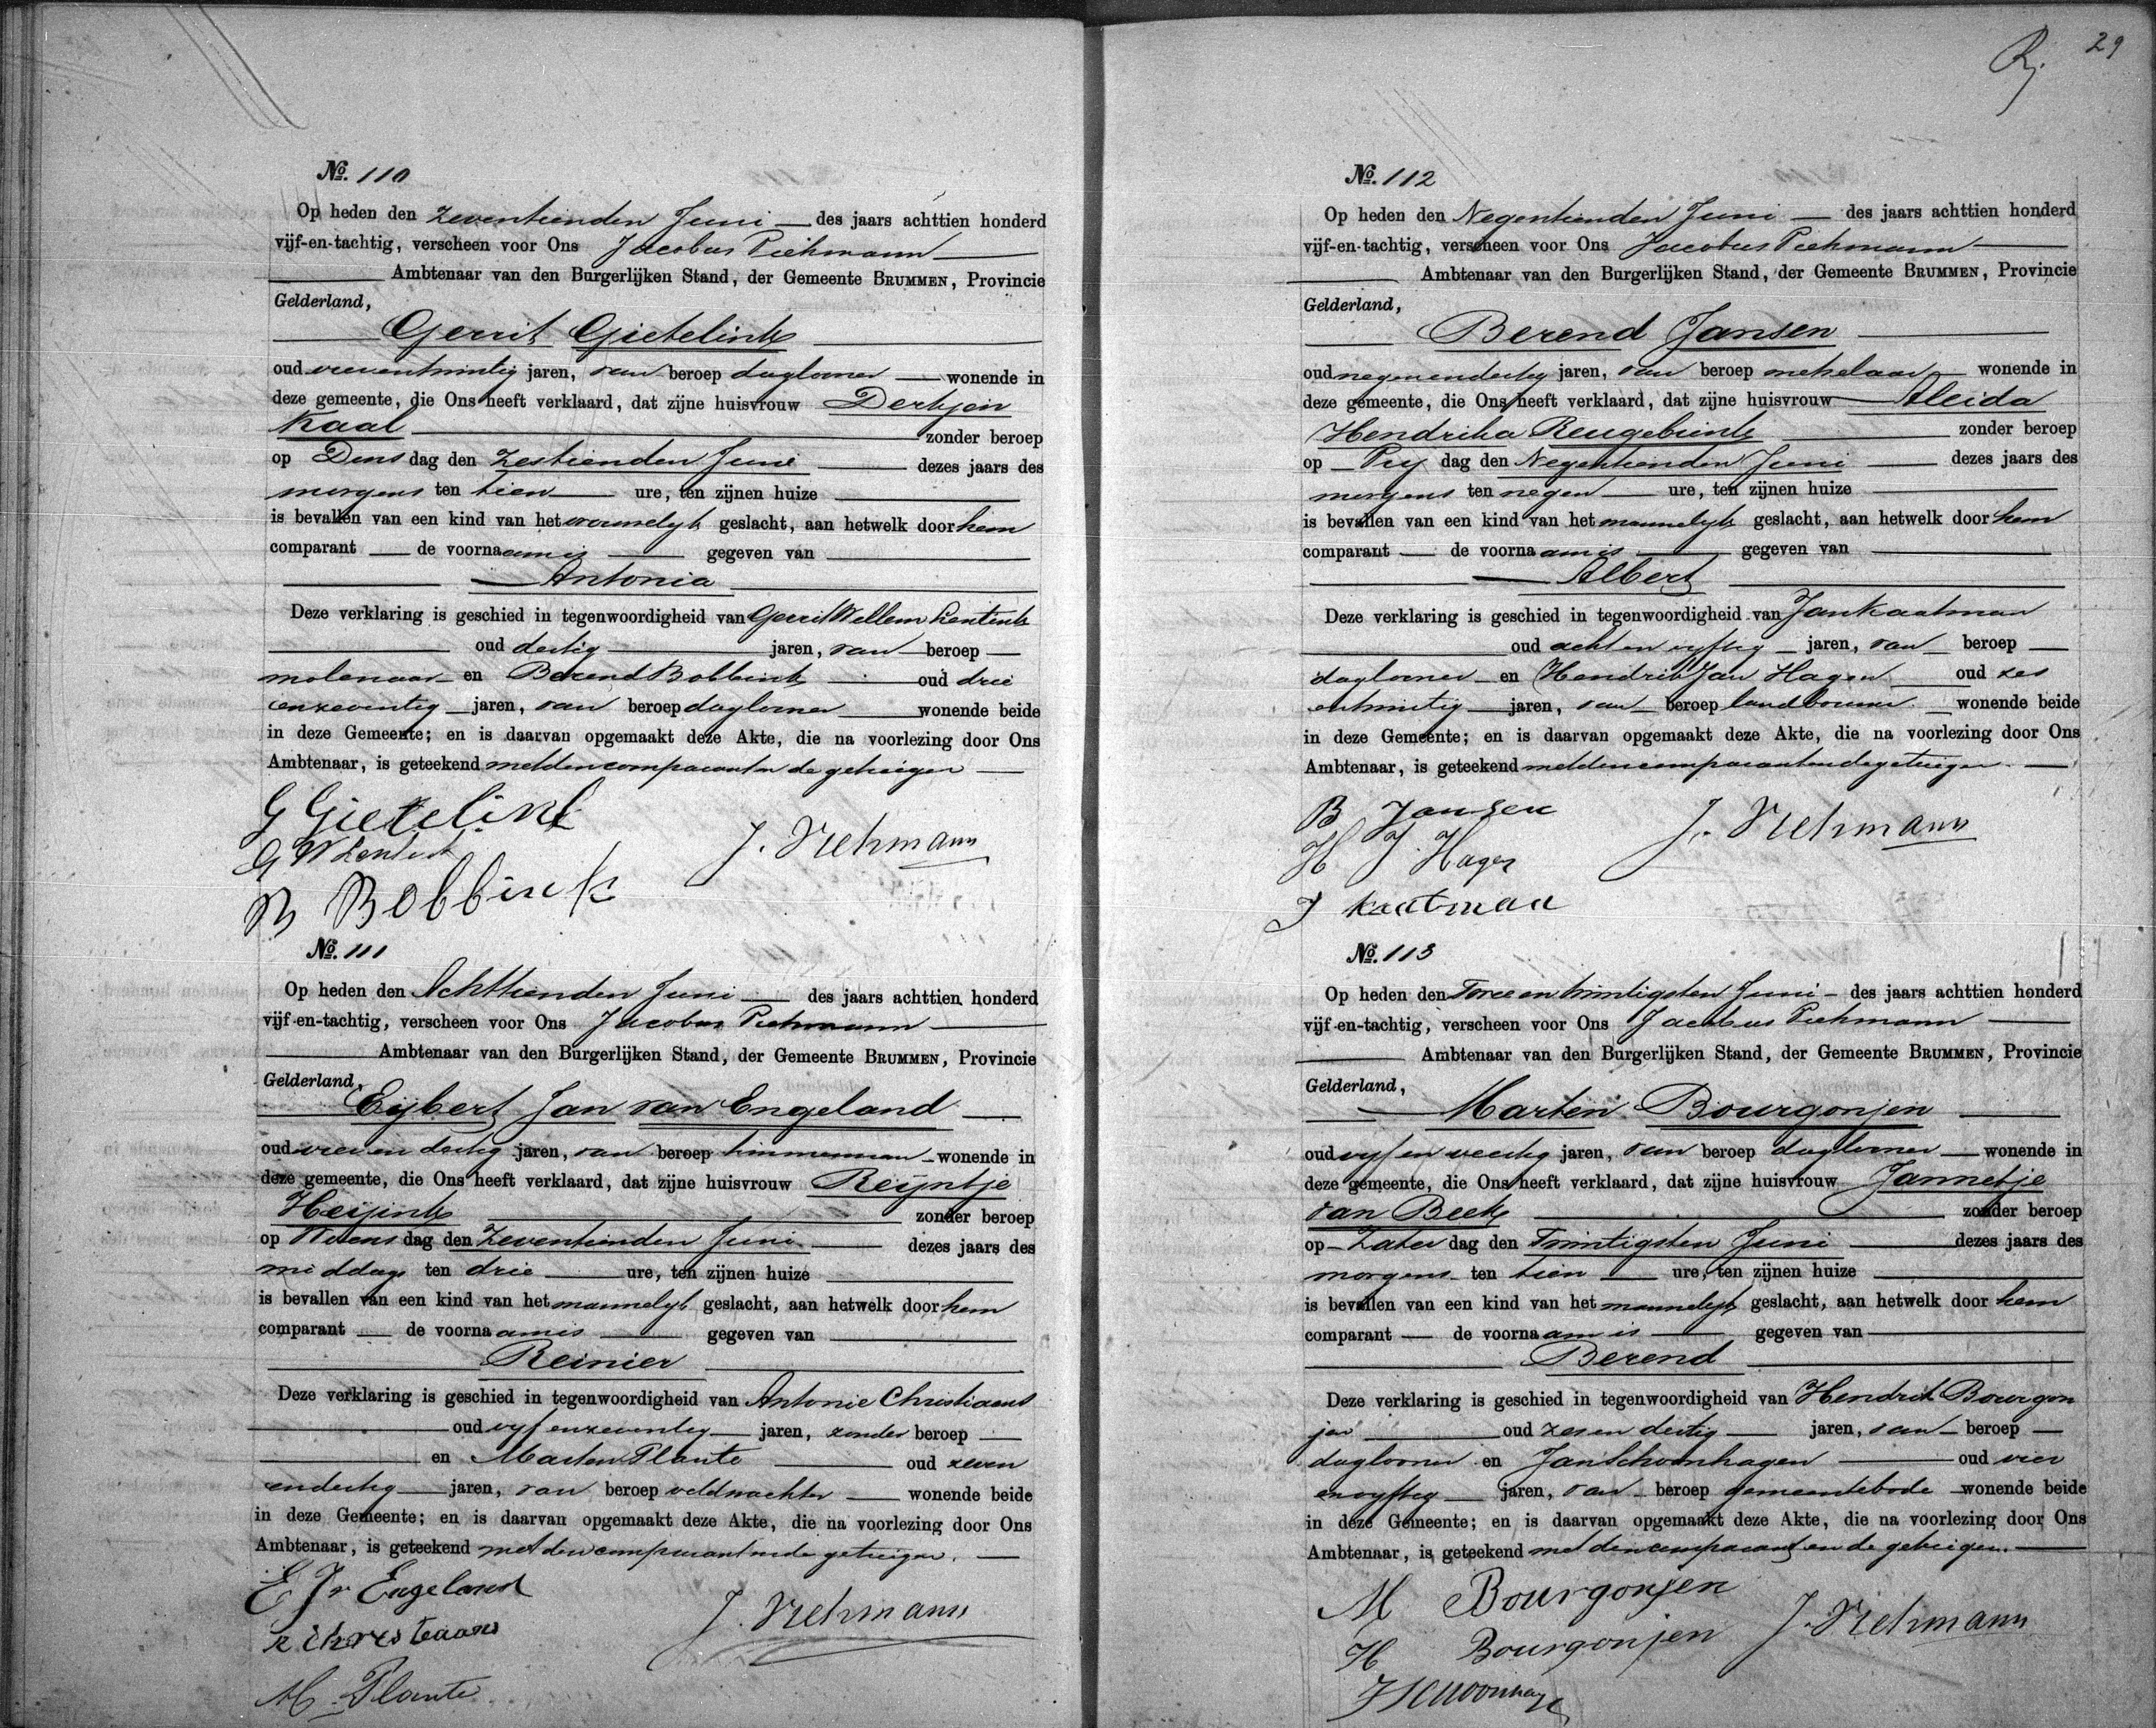 No. 110
Op heden den zeventienden Juni des jaars achttien honderd
vijf-en-tachtig, verscheen voor Ons Jacobus Viehmann
Ambtenaar van den Burgerlijken Stand, der Gemeente BRUMMEN, Provincie
Gelderland,
Gerrit Gietelink
oud vierentwintig jaren, van beroep daglooner wonende in
deze gemeente, die Ons heeft verklaard, dat zijne huisvrouw Derkjen
Kaal zonder beroep
op Dins dag den zestienden Juni dezes jaars des
morgens ten tien ure, ten zijnen huize
is bevallen van een kind van het vrouwelijk geslacht, aan hetwelk door hem
comparant de voornaam is gegeven van
Antonia
Deze verklaring is geschied in tegenwoordigheid van Gerrit Willem Lentink
oud dertig jaren, van beroep
molenaar en Berend Bobbink oud drie
enzeventig jaren, van beroep daglooner wonende beide
in deze Gemeente; en is daarvan opgemaakt deze Akte, die na voorlezing door Ons
Ambtenaar, is geteekend met den comparant en de getuigen
G Gietelink
G W Lentink
J. Viehmann
B Bobbink
No. 111
Op heden den Achttienden Juni des jaars achttien honderd
vijf-en-tachtig, verscheen voor Ons Jacobus Viehmann
Ambtenaar van den Burgerlijken Stand, der Gemeente BRUMMEN, Provincie
Gelderland,
Egbert Jan van Engeland
oud vier en dertig jaren, van beroep timmerman wonende in
deze gemeente, die Ons heeft verklaard, dat zijne huisvrouw Reijntje
Heijink zonder beroep
op Woens dag den Zeventienden Juni dezes jaars des
middags ten drie ure, ten zijnen huize
is bevallen van een kind van het mannelijk geslacht, aan hetwelk door hem
comparant de voornaam is gegeven van
Reinier
Deze verklaring is geschied in tegenwoordigheid van Antonie Christiaans
oud vijf enzeventig jaren, zonder beroep
en Marten Plante oud zeven
endertig jaren, van beroep veldwachter wonende beide
in deze Gemeente; en is daarvan opgemaakt deze Akte, die na voorlezing door Ons
Ambtenaar, is geteekend met den comparant en de getuigen.
E J v Engeland
J. Viehmann
Christiaans
M. Plante
29
No. 112
Op heden den Negentienden Juni des jaars achttien honderd
vijf-en-tachtig, verscheen voor Ons Jacobus Viehmann
Ambtenaar van den Burgerlijken Stand, der Gemeente BRUMMEN, Provincie
Gelderland,
Berend Jansen
oud negenendertig jaren, van beroep metselaar wonende in
deze gemeente, die Ons heeft verklaard, dat zijne huisvrouw Aleida
Hendrika Reugebrink zonder beroep
op Vrij dag den Negentienden Juni dezes jaars des
morgens ten negen ure, ten zijnen huize
is bevallen van een kind van het mannelijk geslacht, aan hetwelk door hem
comparant de voornaam is gegeven van
Albert
Deze verklaring is geschied in tegenwoordigheid van Jan Kaatman
oud acht en vijftig jaren, van beroep
daglooner en Hendrik Jan Hagen oud zes
entwintig jaren, van beroep landbouwer wonende beide
in deze Gemeente; en is daarvan opgemaakt deze Akte, die na voorlezing door Ons
Ambtenaar, is geteekend met den comparant en de getuigen.
B Jansen
J. Viehmann
H J. Hagen
J Kaatman
No. 113
Op heden den Twee en twintigsten Juni des jaars achttien honderd
vijf-en-tachtig, verscheen voor Ons Jacobus Viehmann
Ambtenaar van den Burgerlijken Stand, der Gemeente BRUMMEN, Provincie
Gelderland,
Marten Bourgonjen
oud vijf en veertig jaren, van beroep daglooner wonende in
deze gemeente, die Ons heeft verklaard, dat zijne huisvrouw Jannetje
van Beek zonder beroep
op Zater dag den Twintigsten Juni dezes jaars des
morgens ten tien ure, ten zijnen huize
is bevallen van een kind van het mannelijk geslacht, aan hetwelk door hem
comparant de voornaam is gegeven van
Berend
Deze verklaring is geschied in tegenwoordigheid van Hendrik Bourgon
jen oud zes en dertig jaren, van beroep
daglooner en Jan Schoonhagen oud vier
envijftig jaren, van beroep gemeentebode wonende beide
in deze Gemeente; en is daarvan opgemaakt deze Akte, die na voorlezing door Ons
Ambtenaar, is geteekend met den comparant en de getuigen.
M Bourgonjen
H Bourgonjen
J. Viehmann
J Schoonhagen